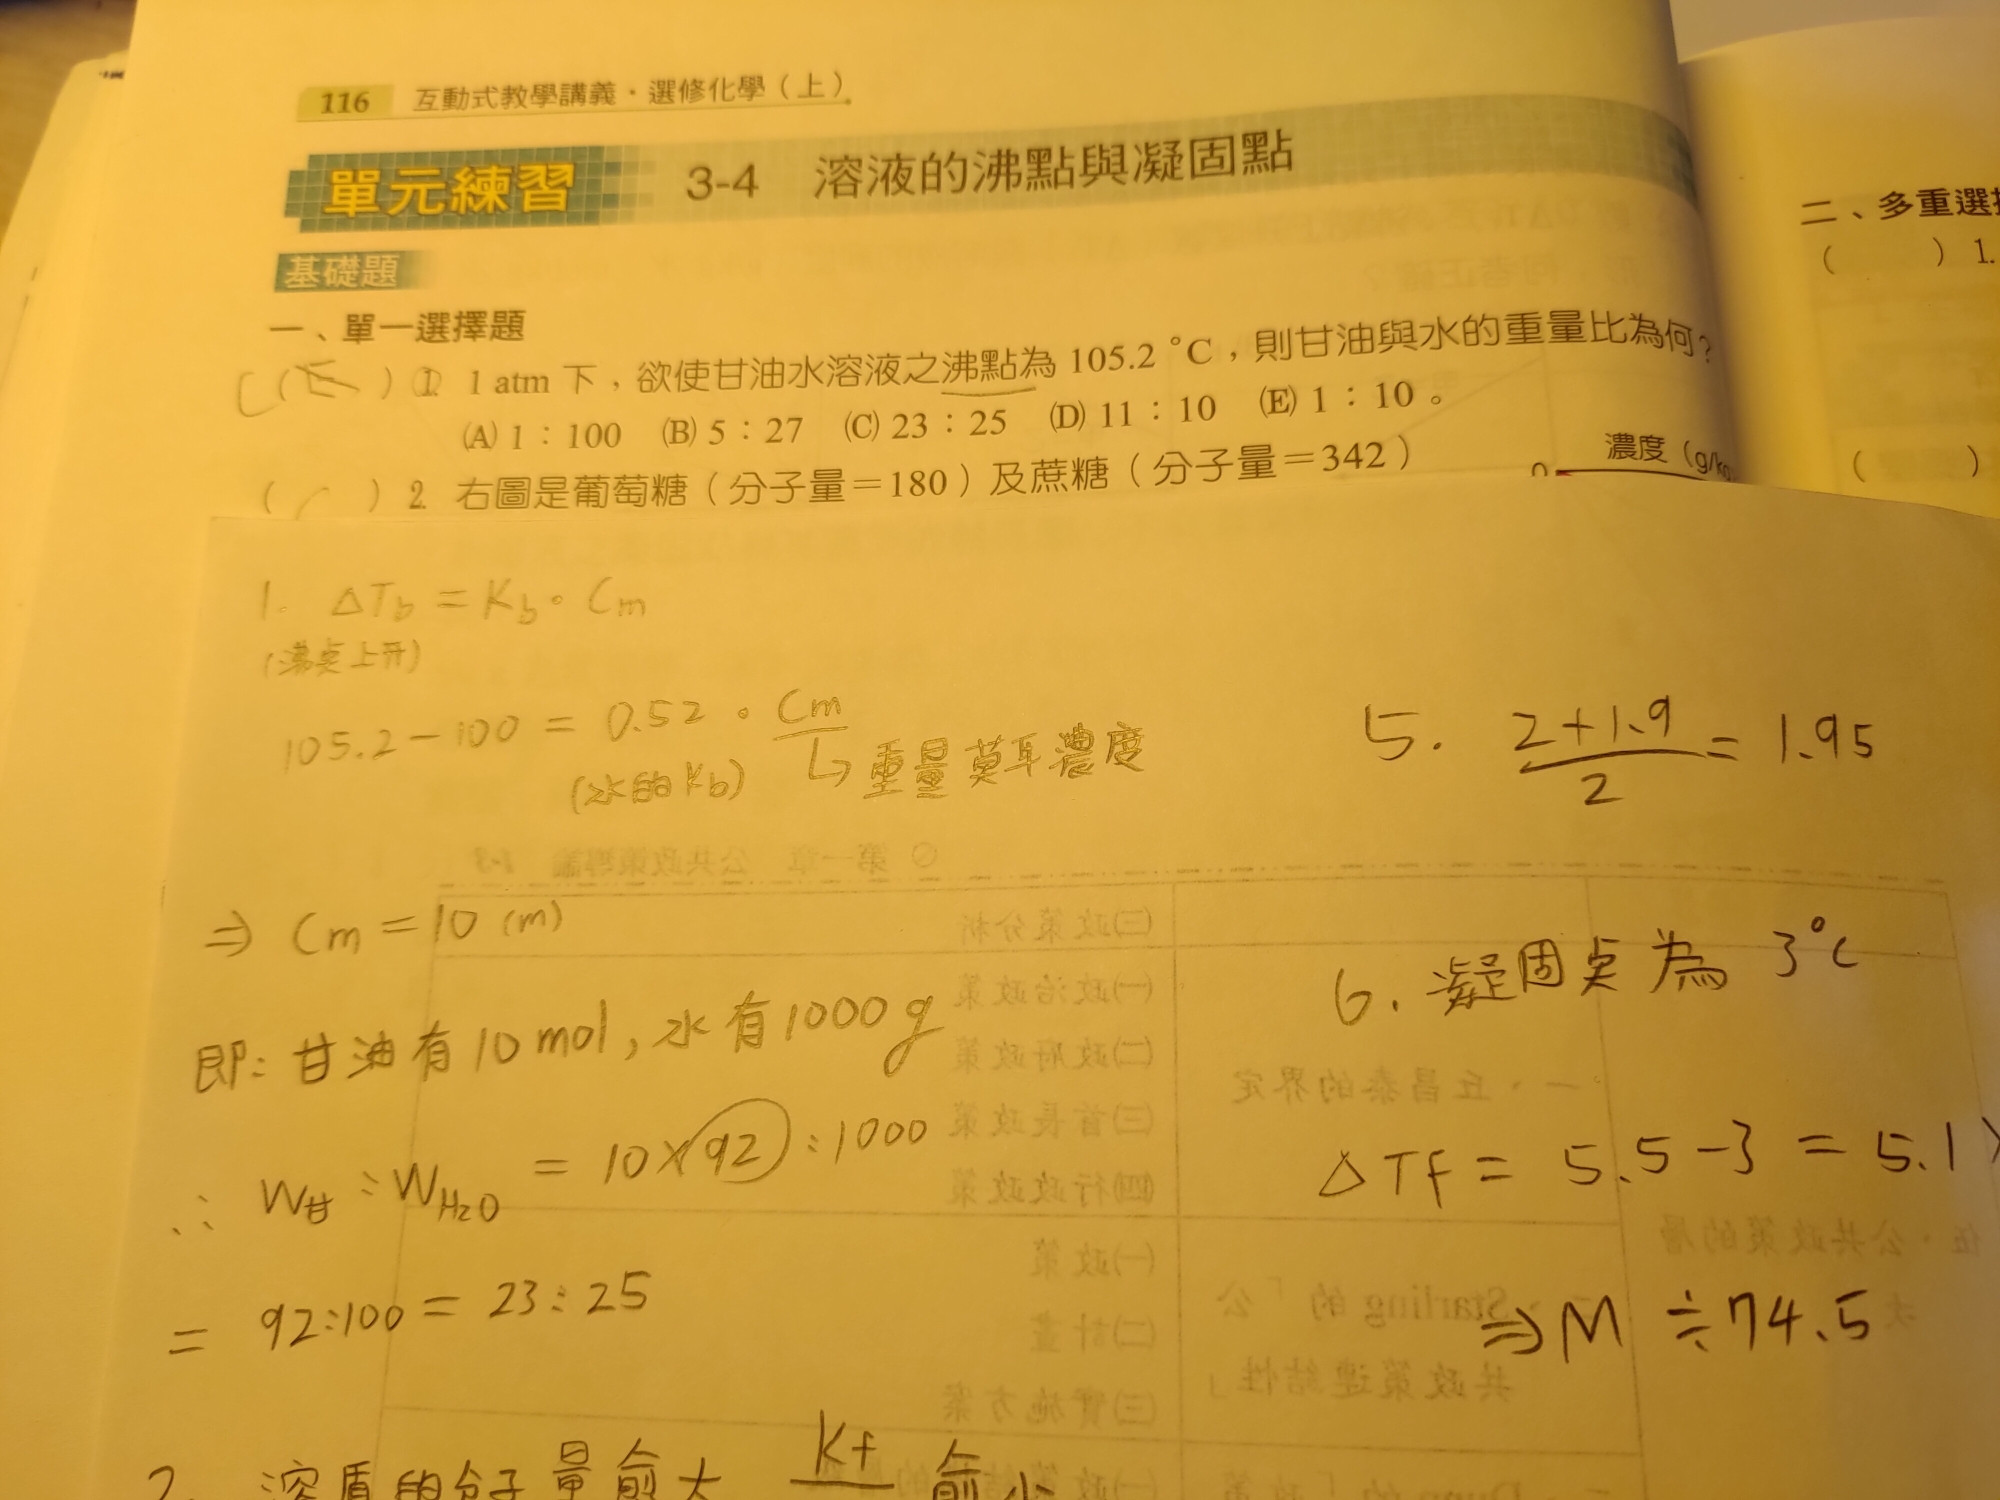 116 互動式教學講義·選修化學(上)
單元練習 3-4 溶液的沸點與凝固點
基礎題
一、單一選擇題
C(E) 1. 1 atm 下,欲使甘油水溶液之沸點為 105.2 °C,則甘油與水的重量比為何?
(A) 1:100 (B) 5:27 (C) 23:25 (D) 11:10 (E) 1:10。
( ) 2. 右圖是葡萄糖(分子量=180)及蔗糖(分子量=342)
濃度(g/kg
0
二、多重選擇
( ) 1.
( )
1. ΔTb = Kb · Cm
(沸點上升)
105.2-100 = 0.52 · Cm
(水的Kb) ↳ 重量莫耳濃度
⇒ Cm = 10 (m)
即:甘油有10mol,水有1000g
∴ W甘:WH2O = 10×92:1000
= 92:100 = 23:25
2. 溶質的分子量愈大 Kf 愈小
5. (2+1.9)/2 = 1.95
6. 凝固点為 3°C
ΔTf = 5.5-3 = 5.1×
⇒ M ≑ 74.5
第一章 公共政策導論 1-3
(三)政策分析
(一)政治政策
(二)政府政策
(三)首長政策
(四)行政政策
一、丘昌泰的界定
伍、公共政策的層
(一)政策
(二)計畫
(三)實施方案
二、Starling 的「公
共政策連結性」